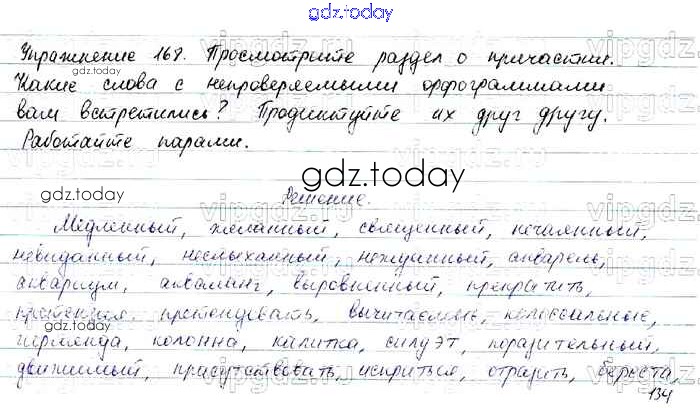 gdz.today
Упражнение 168. Просмотрите раздел о причастии.
Какие слова с непроверяемыми орфограммами
вам встретились? Продиктуйте их друг другу.
Работайте парами.
gdz.today
gdz.today
Решение.
Медленный, желанный, священный, нечаянный,
невиданный, неслыханный, нежданный, акварель,
аквариум, акваланг, выровненный, прекратить,
претензия, претендовать, вычитаемые, колоссальные,
гирлянда, колонна, калитка, силуэт, поразительный,
движимый, присутствовать, испариться, отразить, береста,
134